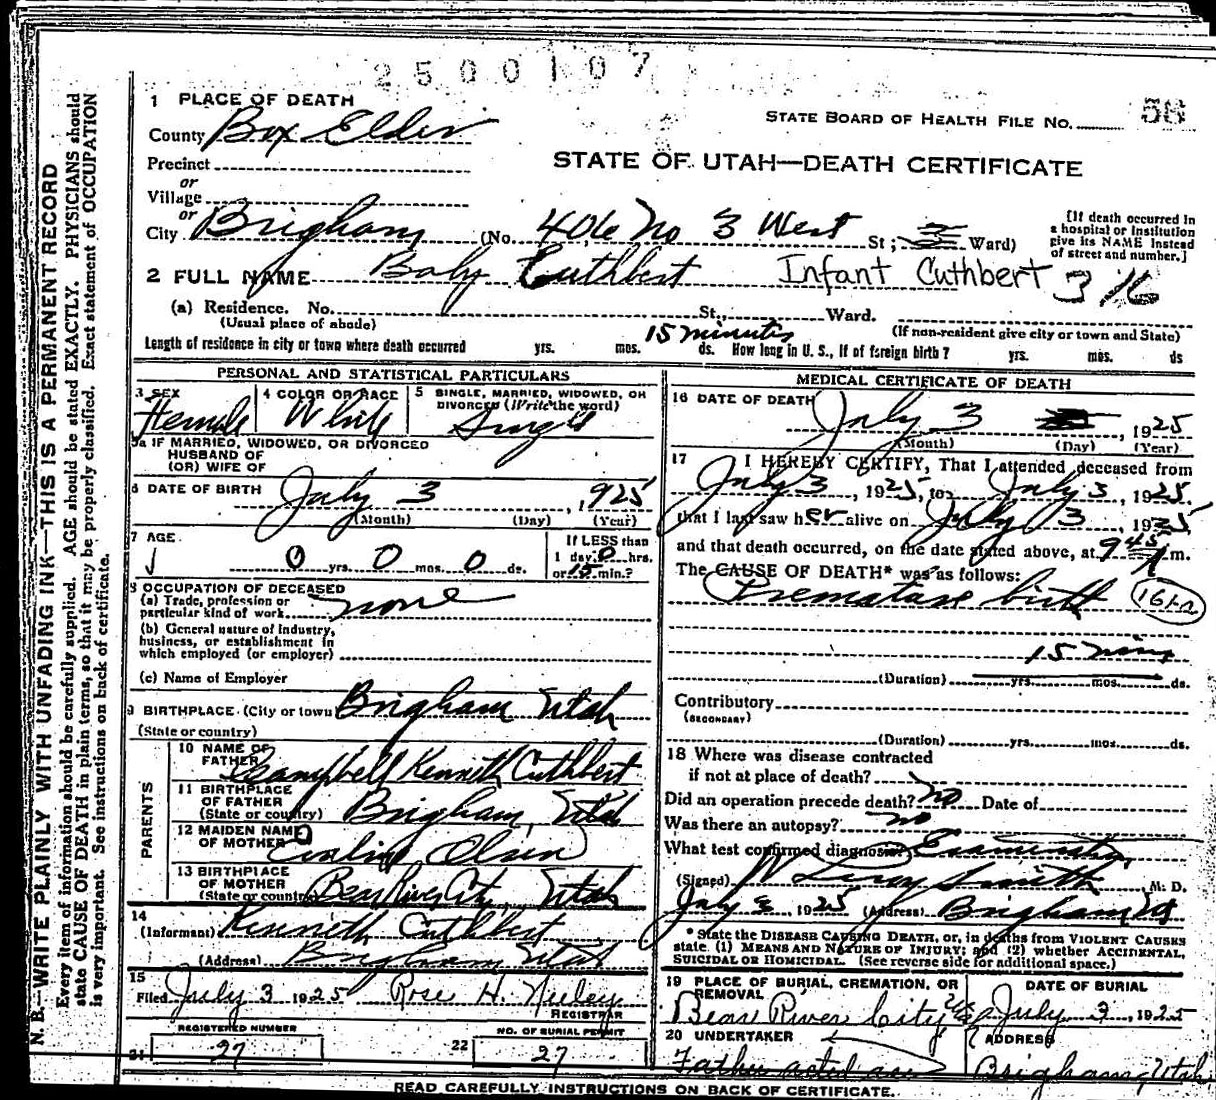 2500107
1 PLACE OF DEATH
STATE BOARD OF HEALTH FILE NO. 56
County Box Elder
STATE OF UTAH—DEATH CERTIFICATE
Precinct
or
Village
or
City Brigham (No. 406 No 3 West St; 3 Ward)
[If death occurred in
a hospital or institution
give its NAME instead
of street and number.]
2 FULL NAME Baby Cuthbert Infant Cuthbert 316
(a) Residence. No. St., Ward.
(Usual place of abode) (If non-resident give city or town and State)
Length of residence in city or town where death occurred yrs. mos. 15 minutes ds. How long in U. S., if of foreign birth? yrs. mos. ds
PERSONAL AND STATISTICAL PARTICULARS
3 SEX Female
4 COLOR OR RACE White
5 SINGLE, MARRIED, WIDOWED, OR
DIVORCED (Write the word) Single
5a IF MARRIED, WIDOWED, OR DIVORCED
HUSBAND OF
(OR) WIFE OF
6 DATE OF BIRTH July 3, 1925
(Month) (Day) (Year)
7 AGE 0 yrs. 0 mos. 0 ds.
If LESS than
1 day 0 hrs.
or 15 min.?
8 OCCUPATION OF DECEASED
(a) Trade, profession or
particular kind of work none
(b) General nature of industry,
business, or establishment in
which employed (or employer)
(c) Name of Employer
9 BIRTHPLACE (City or town Brigham Utah
(State or country)
PARENTS
10 NAME OF
FATHER Campbell Kenneth Cuthbert
11 BIRTHPLACE
OF FATHER
(State or country) Brigham, Utah
12 MAIDEN NAME
OF MOTHER Evaline Olsen
13 BIRTHPLACE
OF MOTHER
(State or country Bear River City, Utah
14
(Informant) Kenneth Cuthbert
(Address) Brigham Utah
15
Filed July 3 1925 Rose H. Neeley
REGISTRAR
REGISTERED NUMBER
21 27
NO. OF BURIAL PERMIT
22 27
MEDICAL CERTIFICATE OF DEATH
16 DATE OF DEATH July 3, 1925
(Month) (Day) (Year)
17 I HEREBY CERTIFY, That I attended deceased from
July 3, 1925, to July 3, 1925.
that I last saw her alive on July 3, 1925
and that death occurred, on the date stated above, at 9 45 m.
The CAUSE OF DEATH* was as follows:
Premature birth 161a
15 mins
(Duration) yrs. mos. ds.
Contributory
(SECONDARY)
(Duration) yrs. mos. ds.
18 Where was disease contracted
if not at place of death?
Did an operation precede death? no Date of
Was there an autopsy? no
What test confirmed diagnosis? Examination
(Signed) W Leroy Smith, M. D.
July 3, 1925 (Address) Brigham Ut
* State the DISEASE CAUSING DEATH, or, in deaths from VIOLENT CAUSES
state. (1) MEANS AND NATURE OF INJURY; and (2) whether ACCIDENTAL,
SUICIDAL OR HOMICIDAL. (See reverse side for additional space.)
19 PLACE OF BURIAL, CREMATION, OR
REMOVAL
Bear River City
DATE OF BURIAL
July 3, 1925
20 UNDERTAKER
Father acted as
ADDRESS
Brigham, Utah
READ CAREFULLY INSTRUCTIONS ON BACK OF CERTIFICATE.
N. B.—WRITE PLAINLY WITH UNFADING INK—THIS IS A PERMANENT RECORD
Every item of information should be carefully supplied. AGE should be stated EXACTLY. PHYSICIANS should
state CAUSE OF DEATH in plain terms, so that it may be properly classified. Exact statement of OCCUPATION
is very important. See instructions on back of certificate.